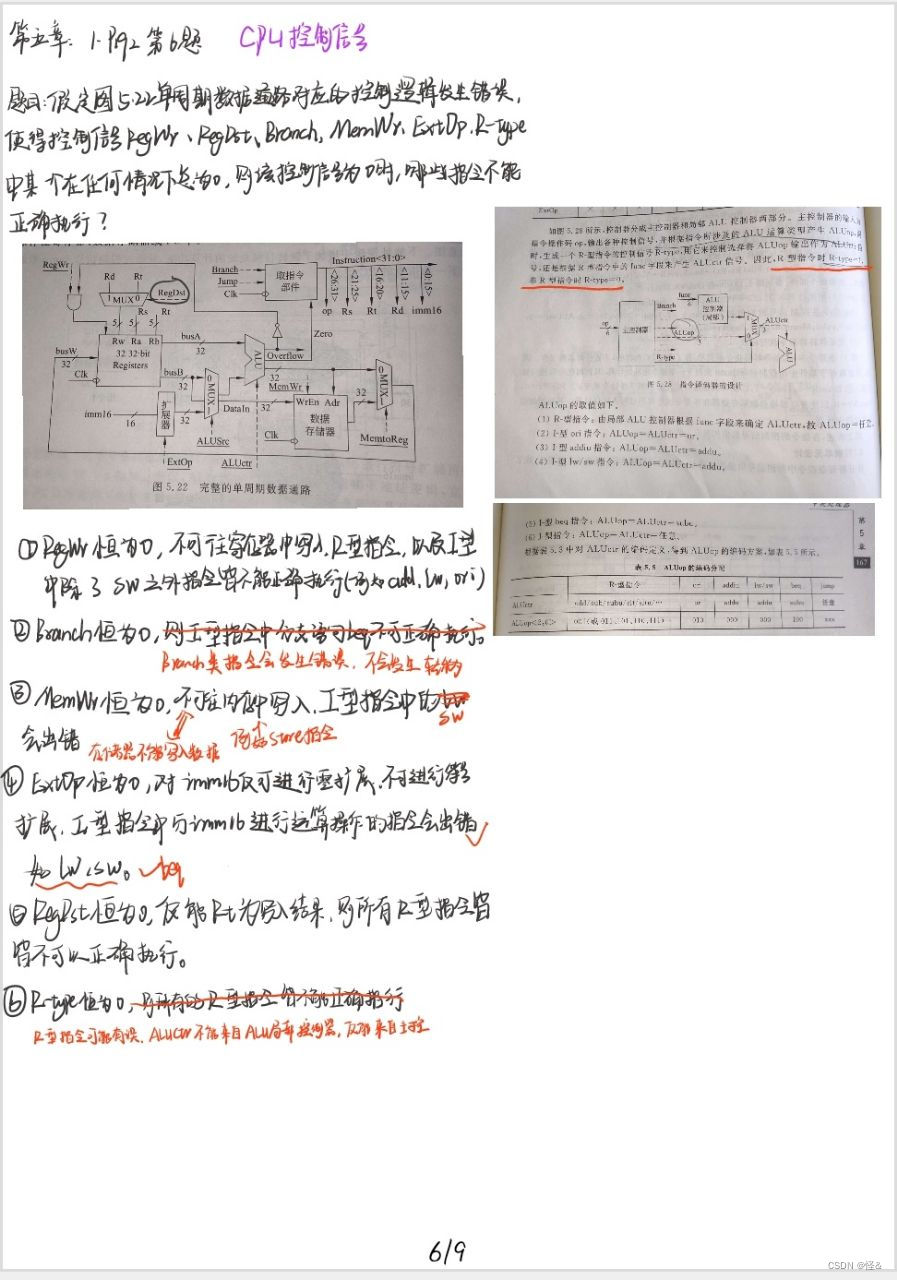 第五章: 1. P192 第6题 CPU控制信号
题目:假定图5.22单周期数据通路对应的控制逻辑发生错误,
使得控制信号RegWr、RegDst、Branch、MemWr、ExtOp、R-type
中某个在任何情况下总为0,则该控制信号为0时,哪些指令不能
正确执行?
RegWr
Rd Rt
1 MUX 0
RegDst
Rs Rt
5 5 5
Rw Ra Rb
32 32-bit
Registers
busW
32
Clk
busA
32
busB
32
imm16
16
扩展器
32
ExtOp
0
MUX
1
ALUSrc
ALU
ALUctr
Branch
Jump
Clk
取指令
部件
Zero
Overflow
Instruction<31:0>
<26:31>
<21:25>
<16:20>
<11:15>
<0:15>
op Rs Rt Rd imm16
32
MemWr
DataIn
32
WrEn Adr
数据
存储器
Clk
32
0
MUX
1
MemtoReg
图 5.22 完整的单周期数据通路
如图 5.28 所示,控制器分成主控制器和局部 ALU 控制器两部分。主控制器的输入为
指令操作码 op,输出各种控制信号,并根据指令所涉及的 ALU 运算类型产生 ALUop,同
时,生成一个 R-型指令的控制信号 R-type,用它来控制选择将 ALUop 输出作为 ALUctr 信
号,还是根据 R 型指令中的 func 字段来产生 ALUctr 信号。因此,R 型指令时 R-type=1,
非 R 型指令时 R-type=0。
op
6
主控制器
Branch
func
6
ALU
控制器
(局部)
ALUop
R-type
MUX
ALUctr
3
ALU
图 5.28 指令译码器的设计
ALUop 的取值如下。
(1) R-型指令:由局部 ALU 控制器根据 func 字段来确定 ALUctr,故 ALUop=任意。
(2) I-型 ori 指令:ALUop=ALUctr=or。
(3) I-型 addiu 指令:ALUop=ALUctr=addu。
(4) I-型 lw/sw 指令:ALUop=ALUctr=addu。
(5) I-型 beq 指令:ALUop=ALUctr=subu。
(6) J-型指令:ALUop=ALUctr=任意。
根据表 5.3 中对 ALUctr 的编码定义,得到 ALUop 的编码方案,如表 5.5 所示。
第
5
章
167
表 5.5 ALUop 的编码分配
R-型指令 ori addiu lw/sw beq jump
ALUctr add/sub/subu/slt/sltu/… or addu addu subu 任意
ALUop<2:0> 010 000 000 100 xxx
①RegWr恒为0,不可往寄存器中写入,R型指令,以及I型
中除了SW之外指令皆不能正确执行(例如add、lw、ori)
②Branch恒为0,则I型指令中分支语句beq不可正确执行。
Branch类指令会发生错误,不会发生转移
③MemWr恒为0,不可往内存中写入,I型指令中的
SW
会出错
存储器不能写入数据 例如Store指令
④ExtOp恒为0,对imm16仅可进行零扩展,不可进行符号
扩展,I型指令中与imm16进行运算操作的指令会出错
如lw、sw。beq
⑤RegDst恒为0,仅能Rt为写入结果,则所有R型指令皆
皆不可以正确执行。
⑥R-type恒为0,则所有的R型指令皆不能正确执行
R型指令可能有误,ALUctr不能来自ALU局部控制器,反而来自主控
6/9
CSDN @怪&